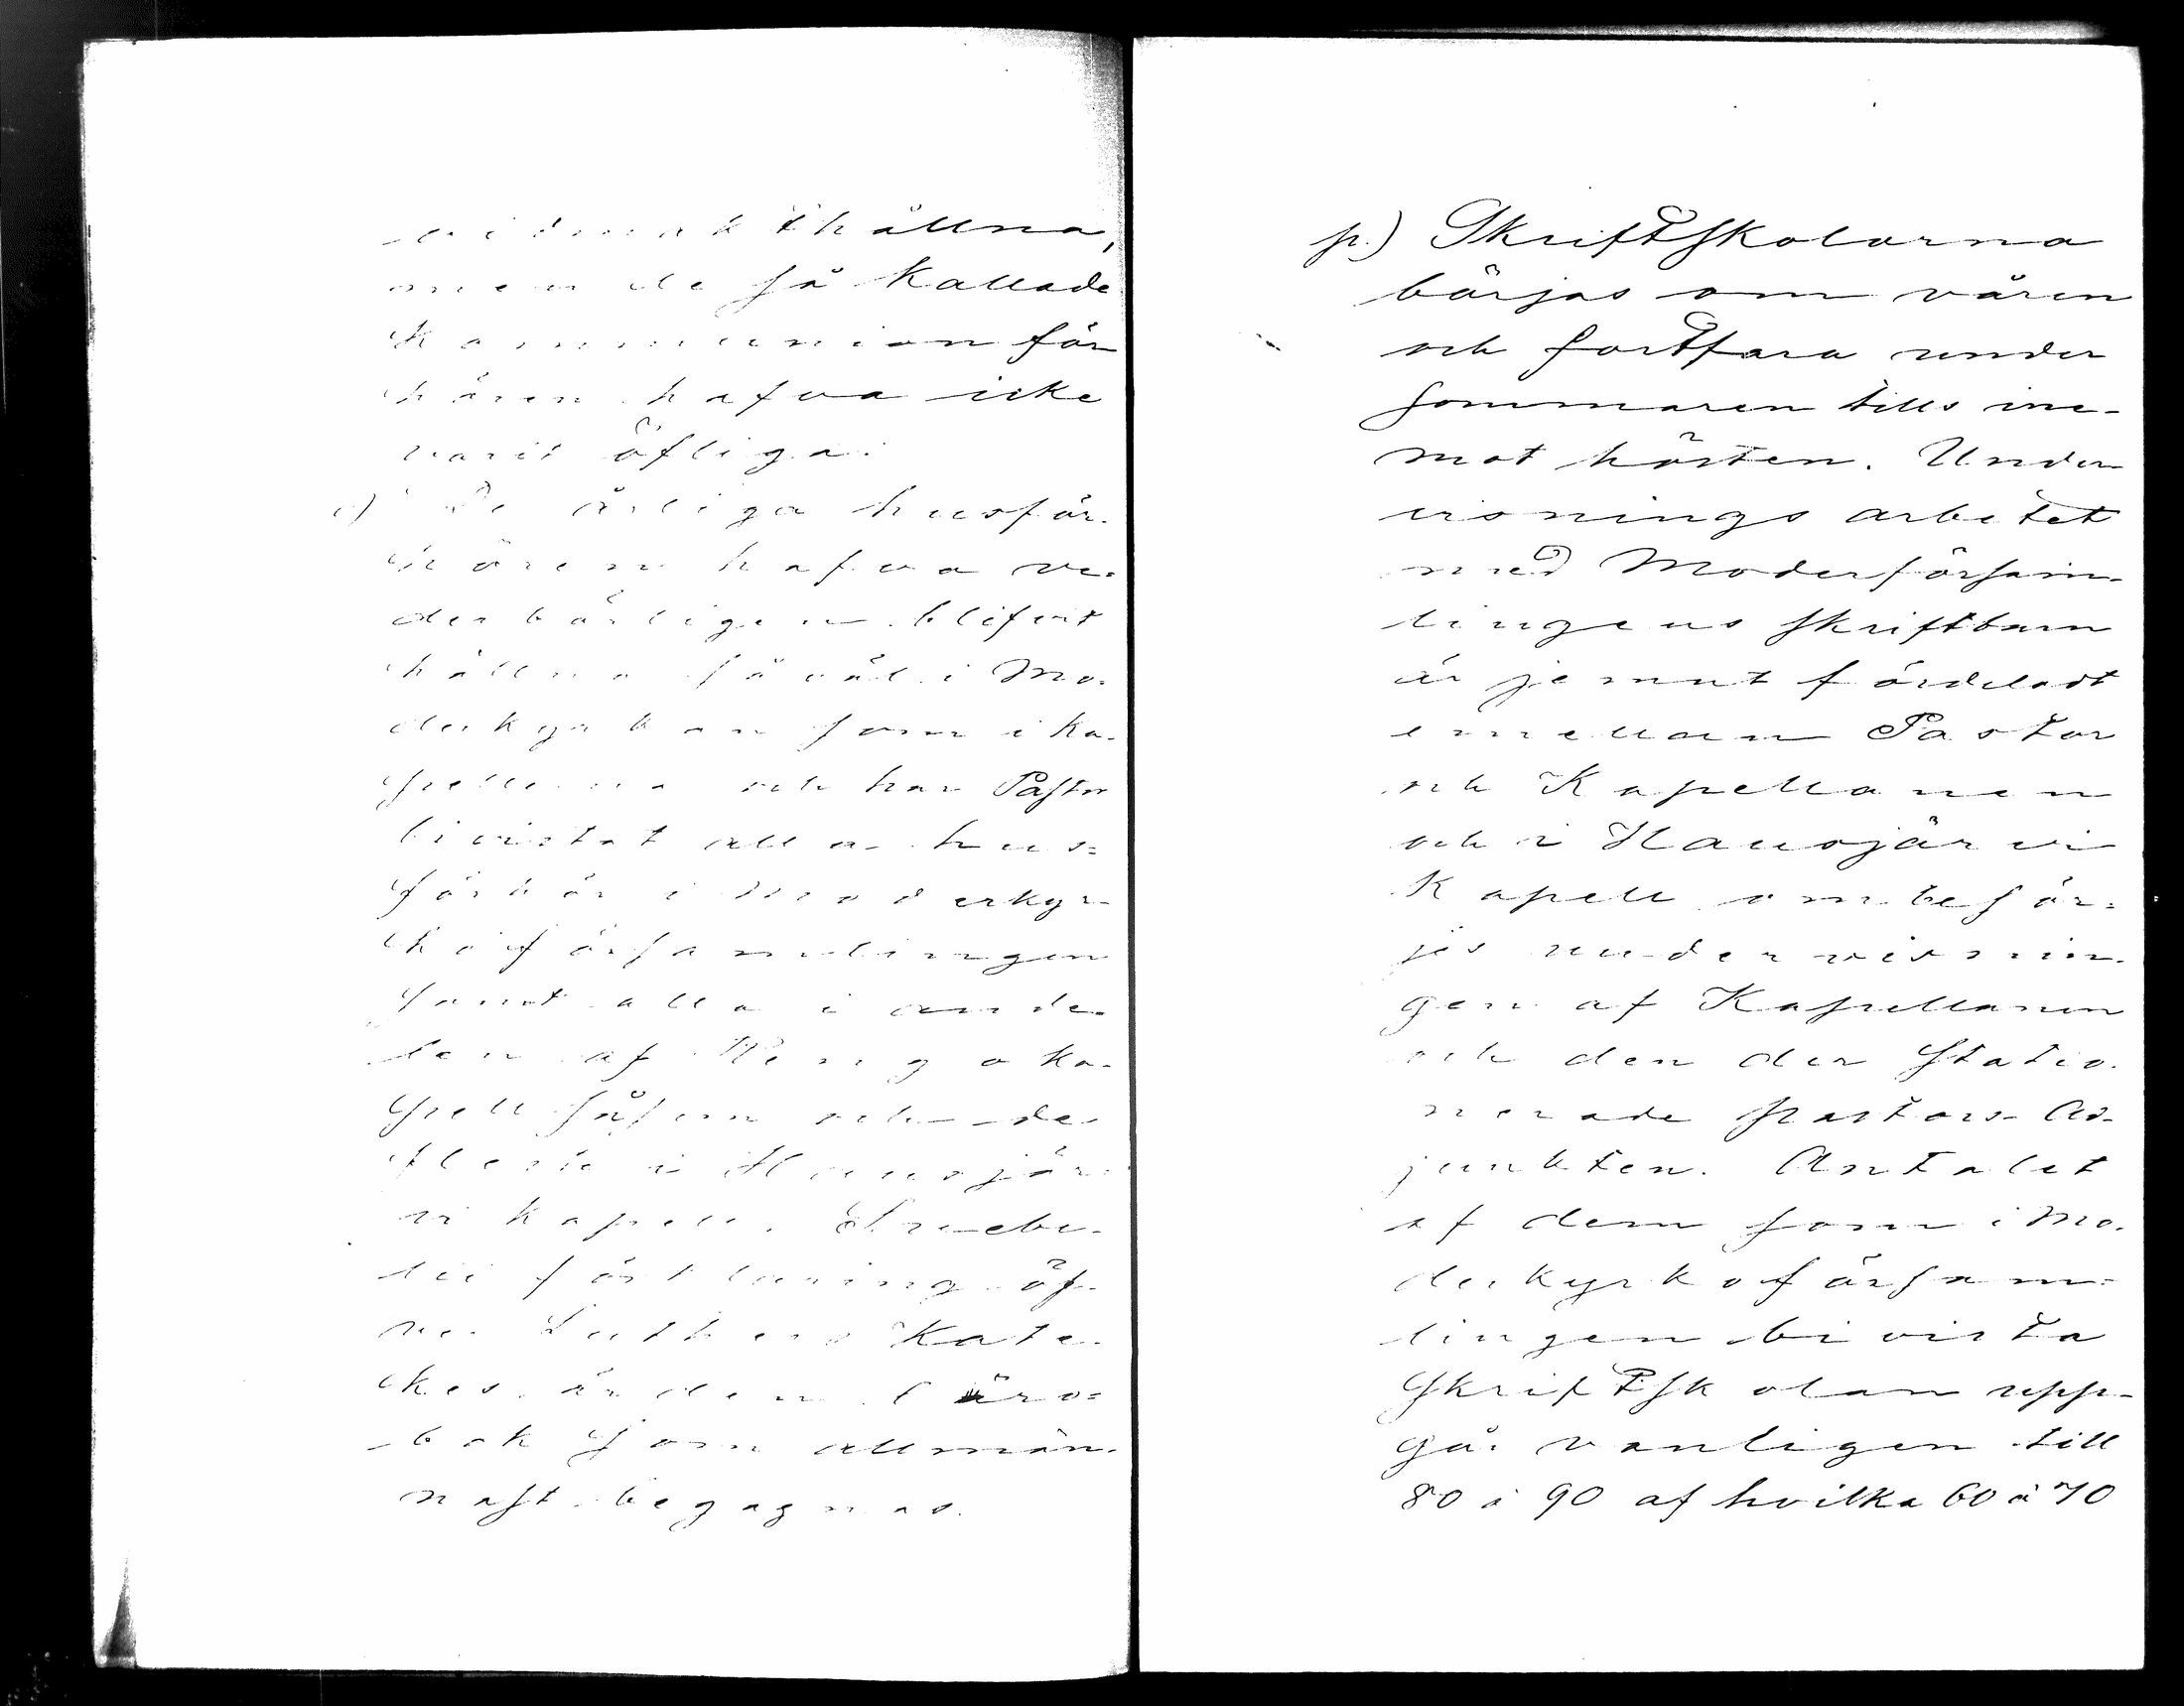 vidmakthållna,
men de så kallade
Kommunion för
hören hafva icke
varit öfliga.
o) De årliga husför-
hören hafva ve-
derbörligen blifvit
hållna såväl i Mo-
derkyrkan som i Ka-
pellerna och har Pastor
bivistat alla hus-
förhör i Moderkyr-
koförsamlingen
samt alla i ande-
len af Kapell
såsom och de
flesta i Hausjär-
vi Kapell. Svebe-
lii förklaring öf-
ver Luthers Kate-
kes är den läro-
bok som allmän-
nast begagnas.
p.) Skriftskolorna
börjas om våren
och fortfara under
sommaren tills ine-
mot hösten. Under-
visnings arbetet
med Moderförsam-
lingens skriftbarn
är jemnt fördeladt
emellan Pastor
och Kapellanen
och i Hausjärvi
Kapell ombesör-
jes undervisnin-
gen af Kapellanen
och den der statio-
nerade pastors-Ad-
junkten. Antalet
af dem som i Mo-
derkyrkoförsam-
lingen bivista
Skriftskolan upp-
går vanligen till
80 à 90 af hvilka 60 à 70